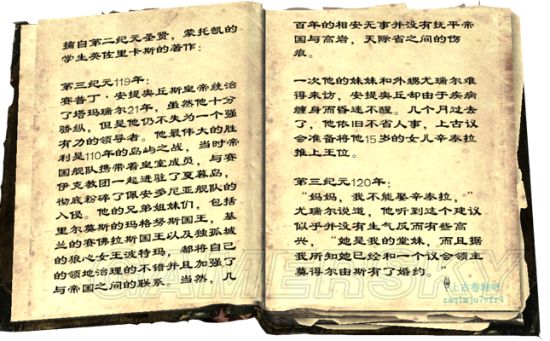 摘自第二纪元圣贤，蒙托凯的
学生英佐里卡斯的著作：
第三纪元119年：
赛普丁·安提奥丘斯皇帝统治
了塔玛瑞尔21年，虽然他十分
骄纵，但是他仍不失为一个强
有力的领导者。他最伟大的胜
利是110年的岛屿之战，当时帝
国舰队携带着皇室成员，与赛
伊克教团一起进驻了夏暮岛，
彻底粉碎了佩安多尼亚舰队的
入侵。他的兄弟姐妹们，包括
里尔莫斯的玛格努斯国王，基
兰的赛佛拉斯国王以及独孤城
的狼心女王波特玛，都将自己
的领地治理的不错并且加强了
与帝国之间的联系。当然，几
百年的相安无事并没有抚平帝
国与高岩，天际省之间的伤
痕。
一次他的妹妹和外甥尤瑞尔难
得来访，安提奥丘却由于疾病
缠身而昏迷不醒。几个月过去
了，他依旧不省人事，上古议
会准备将他15岁的女儿辛泰拉
推上王位。
第三纪元120年：
“妈妈，我不能娶辛泰拉，”
尤瑞尔说道，他听到这个建议
似乎并没有生气反而有些高
兴，“她是我的堂妹，而且据
我所知她已经和一个议会领主
莫得尔由斯有了婚约。”
GAMERSKY
上古卷轴吧
zaq1mju7vfr4